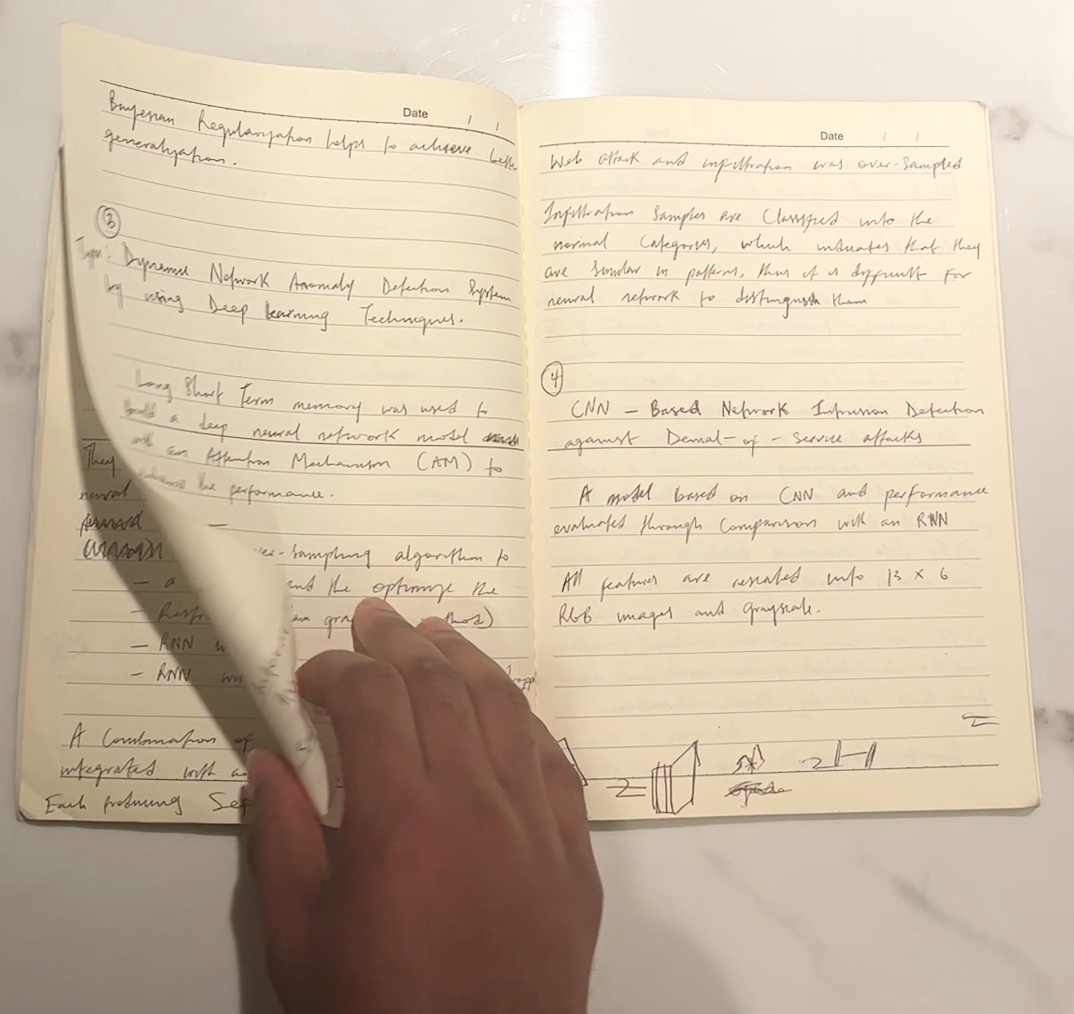 Date / /
Bayesian Regularization helps to achieve better
generalization.
3
Dynamic Network Anomaly Detection System
by using Deep learning Techniques.
Long Short Term memory was used to
build a deep neural network model
an Attention Mechanism (AM) to
the performance.
They
neural
-sampling algorithm to
– a and the optimize the
– RNN
– RNN
A Combination of
integrated with
Each
Date / /
Web attack and infiltration was over-sampled
Infiltration Samples are Classified into the
normal Categories, which indicates that they
are similar in patterns, thus it is difficult for
neural network to distinguish them
4
CNN – Based Network Intrusion Detection
against Denial-of-Service attacks
A model based on CNN and performance
evaluated through Comparison with an RNN
All features are rescaled into 13 x 6
RGB images and grayscale.